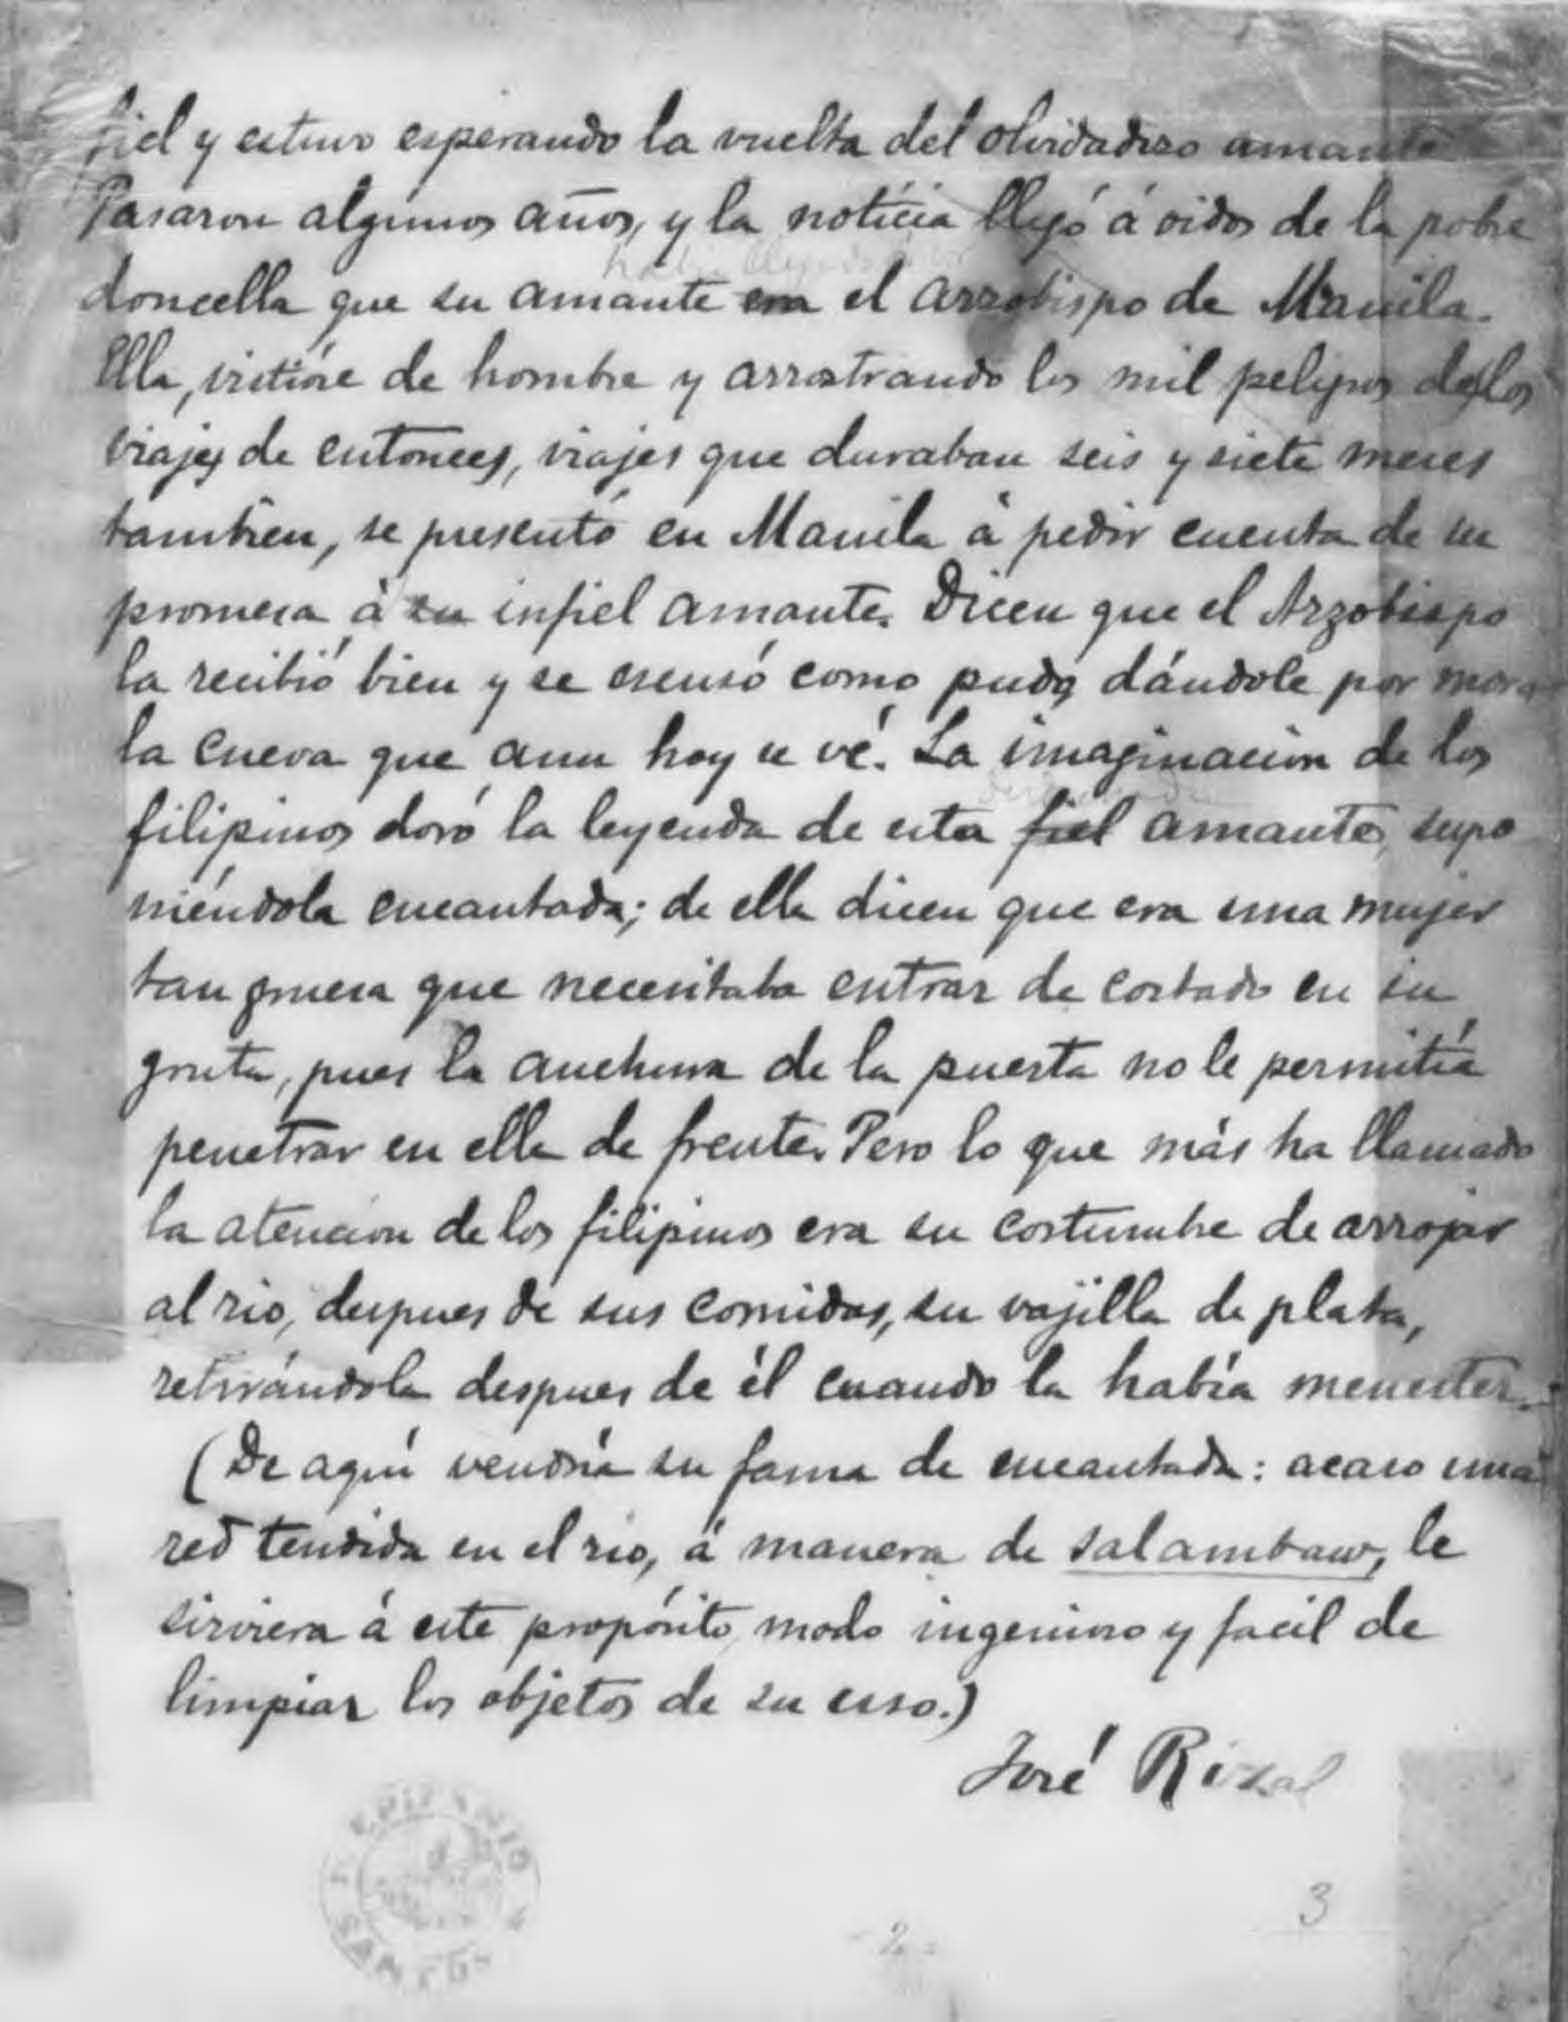 fiel y estuvo esperando la vuelta del olvidadizo amante
Pasaron algunos años, y la noticia llegó á oidos de la pobre
doncella que su amante era el arzobispo de Manila.
Ella, vistióse de hombre y arrostrando los mil peligros de los
viajes de entonces, viajes que duraban seis y siete meses
tambien, se presentó en Manila á pedir cuenta de su
promesa á su infiel amante. Dicen que el Arzobispo
la recibió bien y se escusó como pudo, dándole por mora
la cueva que aun hoy se vé. La imaginacion de los
filipinos doró la leyenda de esta fiel amante, supo
niéndola encantada; de ella dicen que era una mujer
tan gruesa que necesitaba entrar de costado en su
gruta, pues la anchura de la puerta no le permitía
penetrar en ella de frente. Pero lo que más ha llamado
la atencion de los filipinos era su costumbre de arrojar
al rio, despues de sus comidas, su vajilla de plata,
retirándola despues de él cuando la había menester.
(De aquí vendría su fama de encantada: acaso una
red tendida en el rio, á manera de salambaw, le
sirviera á este propósito, modo ingenioso y facil de
limpiar los objetos de su uso.)
José Rizal
EPIFANIO
SANTOS
3
2